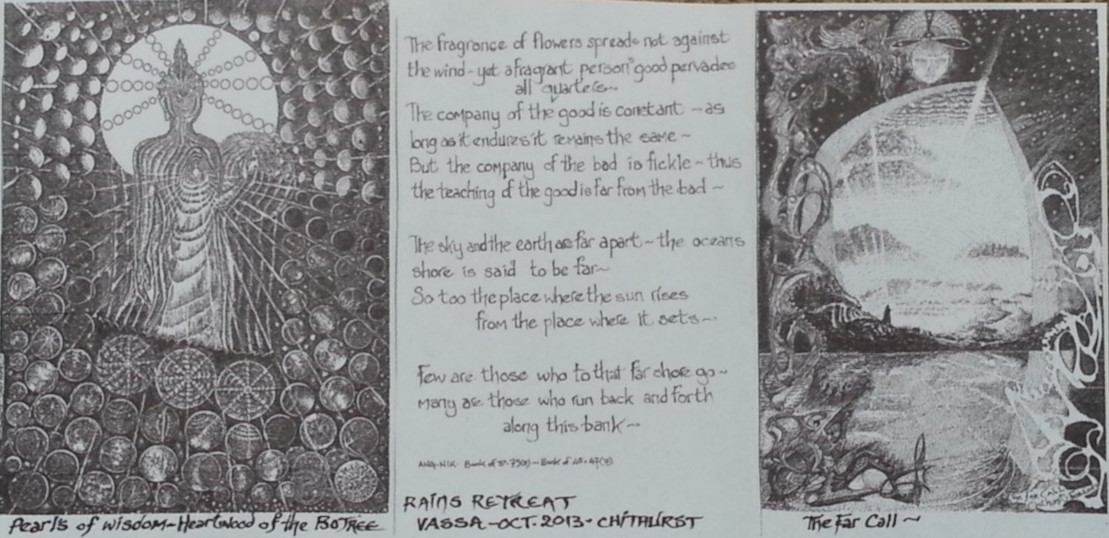 The fragrance of flowers spreads not against
the wind - yet a fragrant person's good pervades
all quarters~
The company of the good is constant ~ as
long as it endures it remains the same ~
But the company of the bad is fickle ~ thus
the teaching of the good is far from the bad ~
The sky and the earth are far apart ~ the oceans
shore is said to be far~
So too the place where the sun rises
from the place where it sets~
Few are those who to that far shore go~
Many are those who run back and forth
along this bank~
ANG. NIK. Book of
RAINS RETREAT
VASSA - OCT. 2013 - CHITHURST
Pearls of Wisdom ~ Heartwood of the BOTREE
The Far Call ~